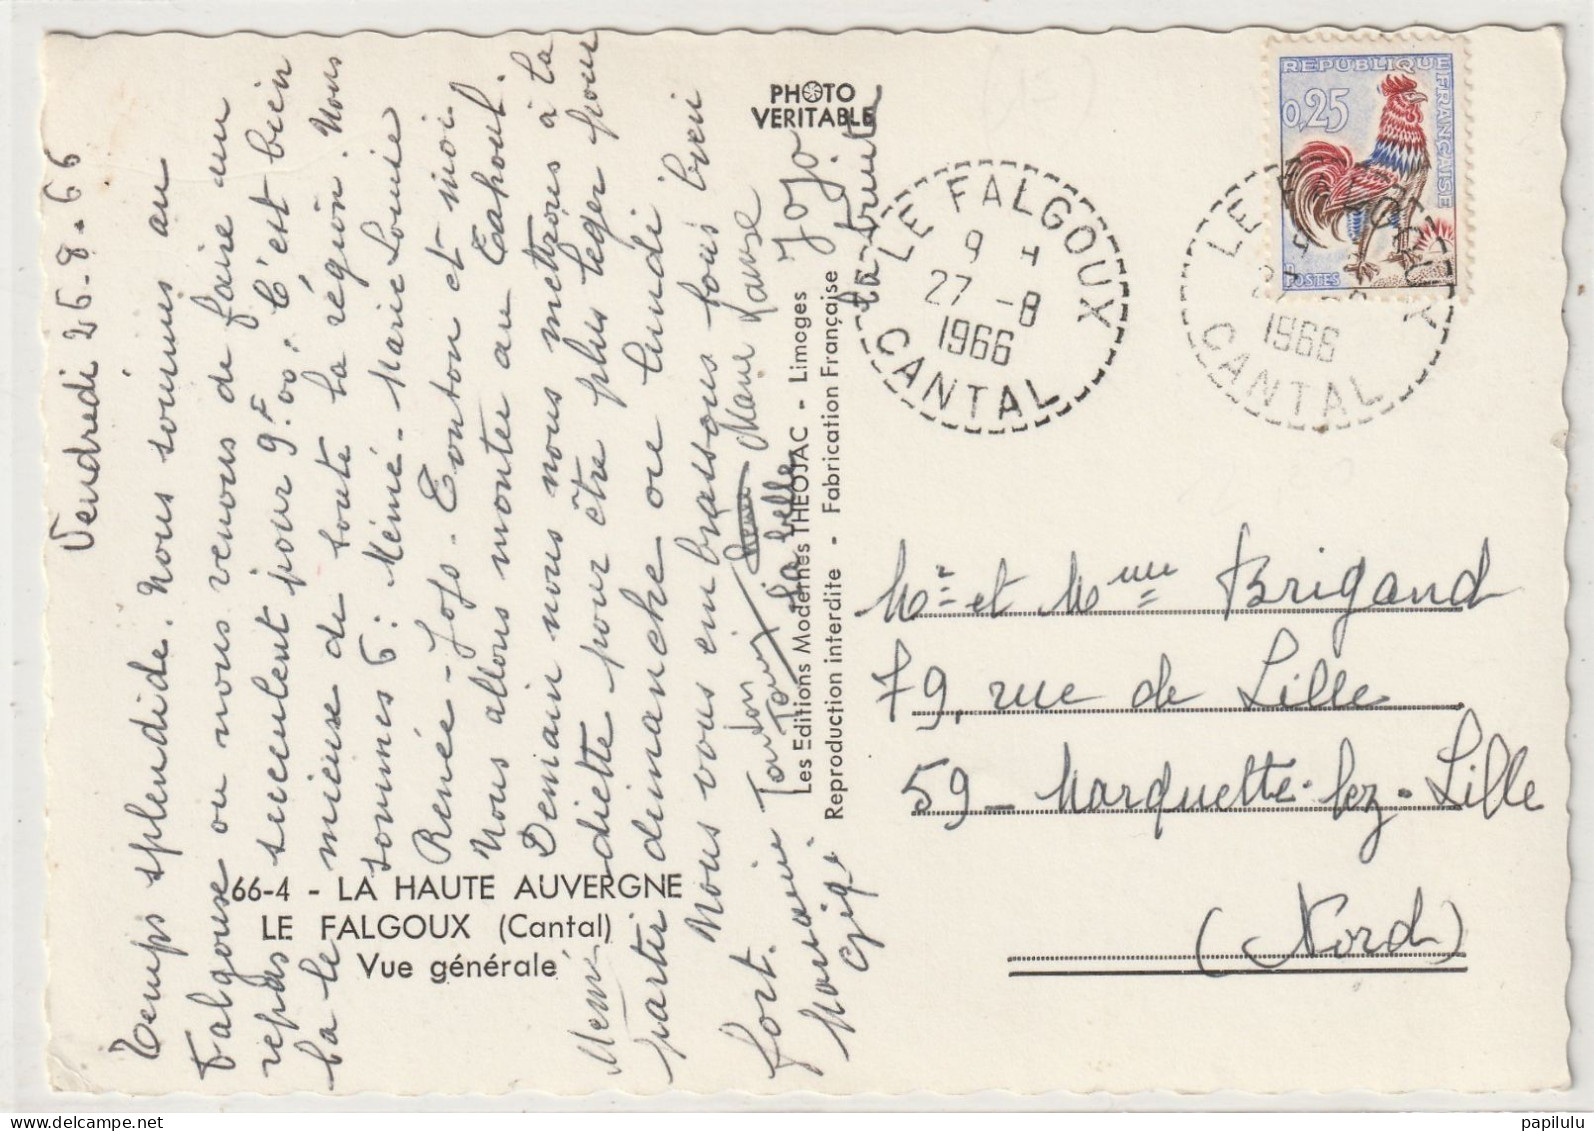 Vendredi 26-8-66
Temps splendide. Nous sommes au
Falgoux où nous venons de faire un
repas succulent pour 9,F00. C'est bien
la le mieux de toute la région. Nous
sommes 6: Mémé - Marie Louise
Renée - Jojo. Tonton et moi.
Nous allons monter au
Demain nous nous mettrons à la
diette pour être plus leger pour
partir dimanche ou lundi
Nous vous embrassons tous bien
fort.
Tonton
Jojo
la belle
la bruit
66-4 - LA HAUTE AUVERGNE
LE FALGOUX (Cantal)
Vue générale
PHOTO
VERITABLE
Les Editions Modernes THEOJAC - Limoges
Reproduction interdite - Fabrication Française
LE FALGOUX
9 H
27 -8
1966
CANTAL
REPUBLIQUE
FRANÇAISE
0,25
POSTES
1966
CANTAL
Mr et Mme Brigand
79, rue de Lille
59 - Marquette-lez-Lille
(Nord)
www.delcampe.net
papilulu